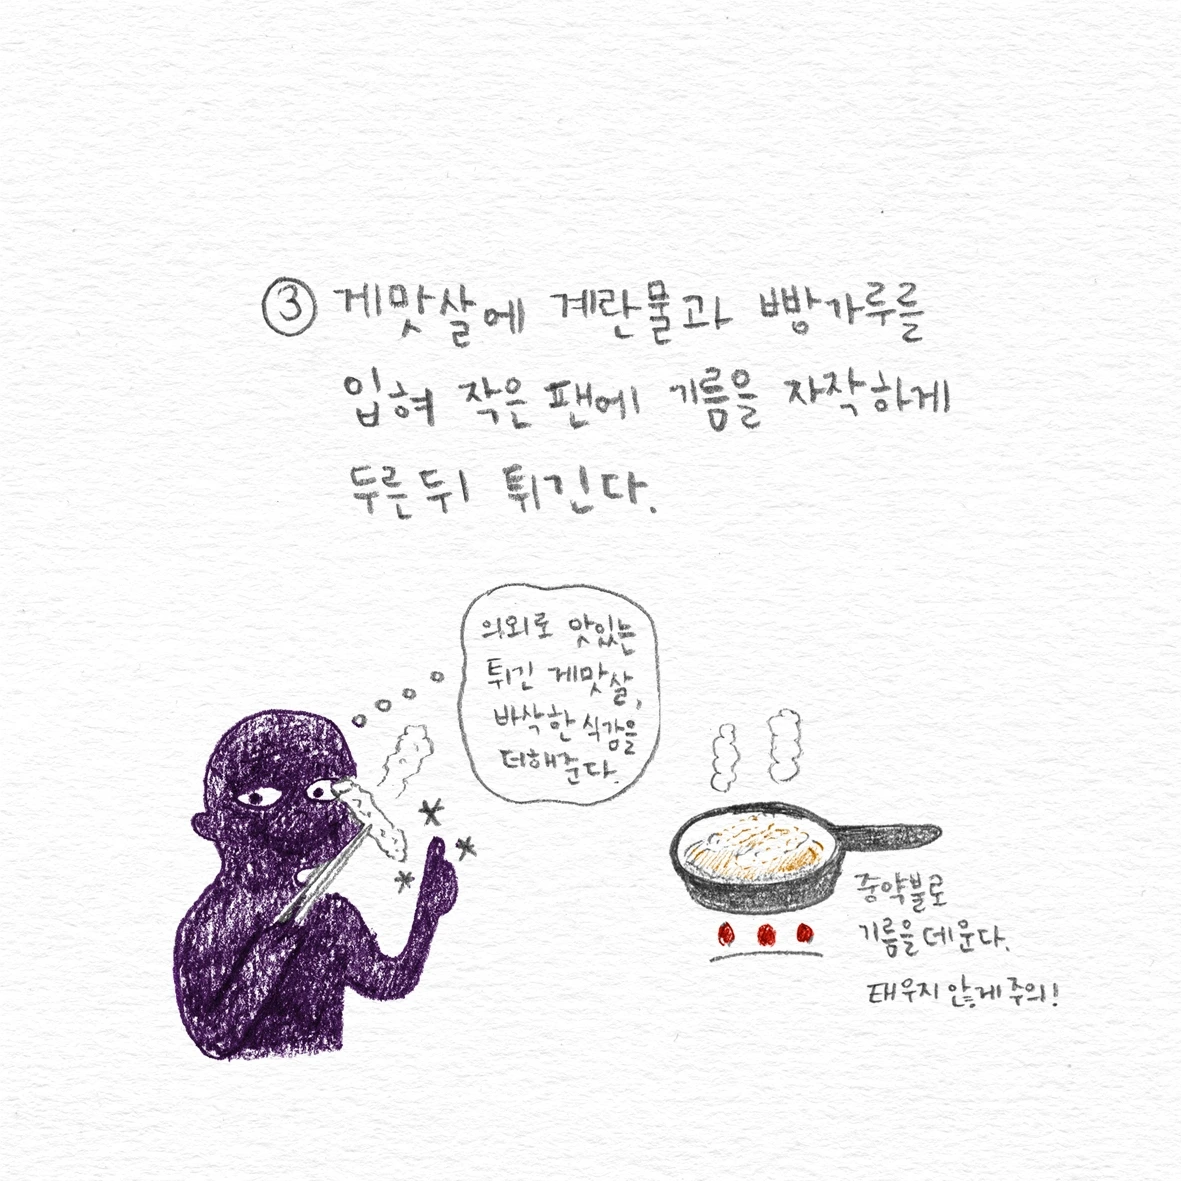 ③ 게맛살에 계란물과 빵가루를
입혀 작은 팬에 기름을 자작하게
두른 뒤 튀긴다.
의외로 맛있는
튀긴 게맛살,
바삭한 식감을
더해준다.
중약불로
기름을 데운다.
태우지 않게 주의!